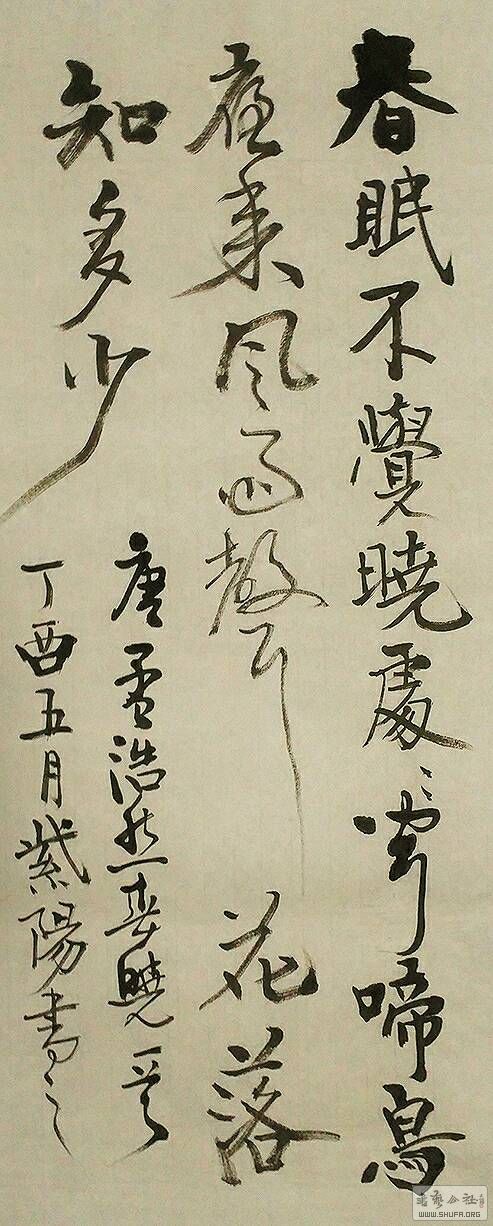 春眠不覺曉處〻聞啼鳥
夜来風雨聲花落
知多少
唐孟浩然春曉一首
丁酉五月紫陽書之
書藝公社
WWW.SHUFA.ORG